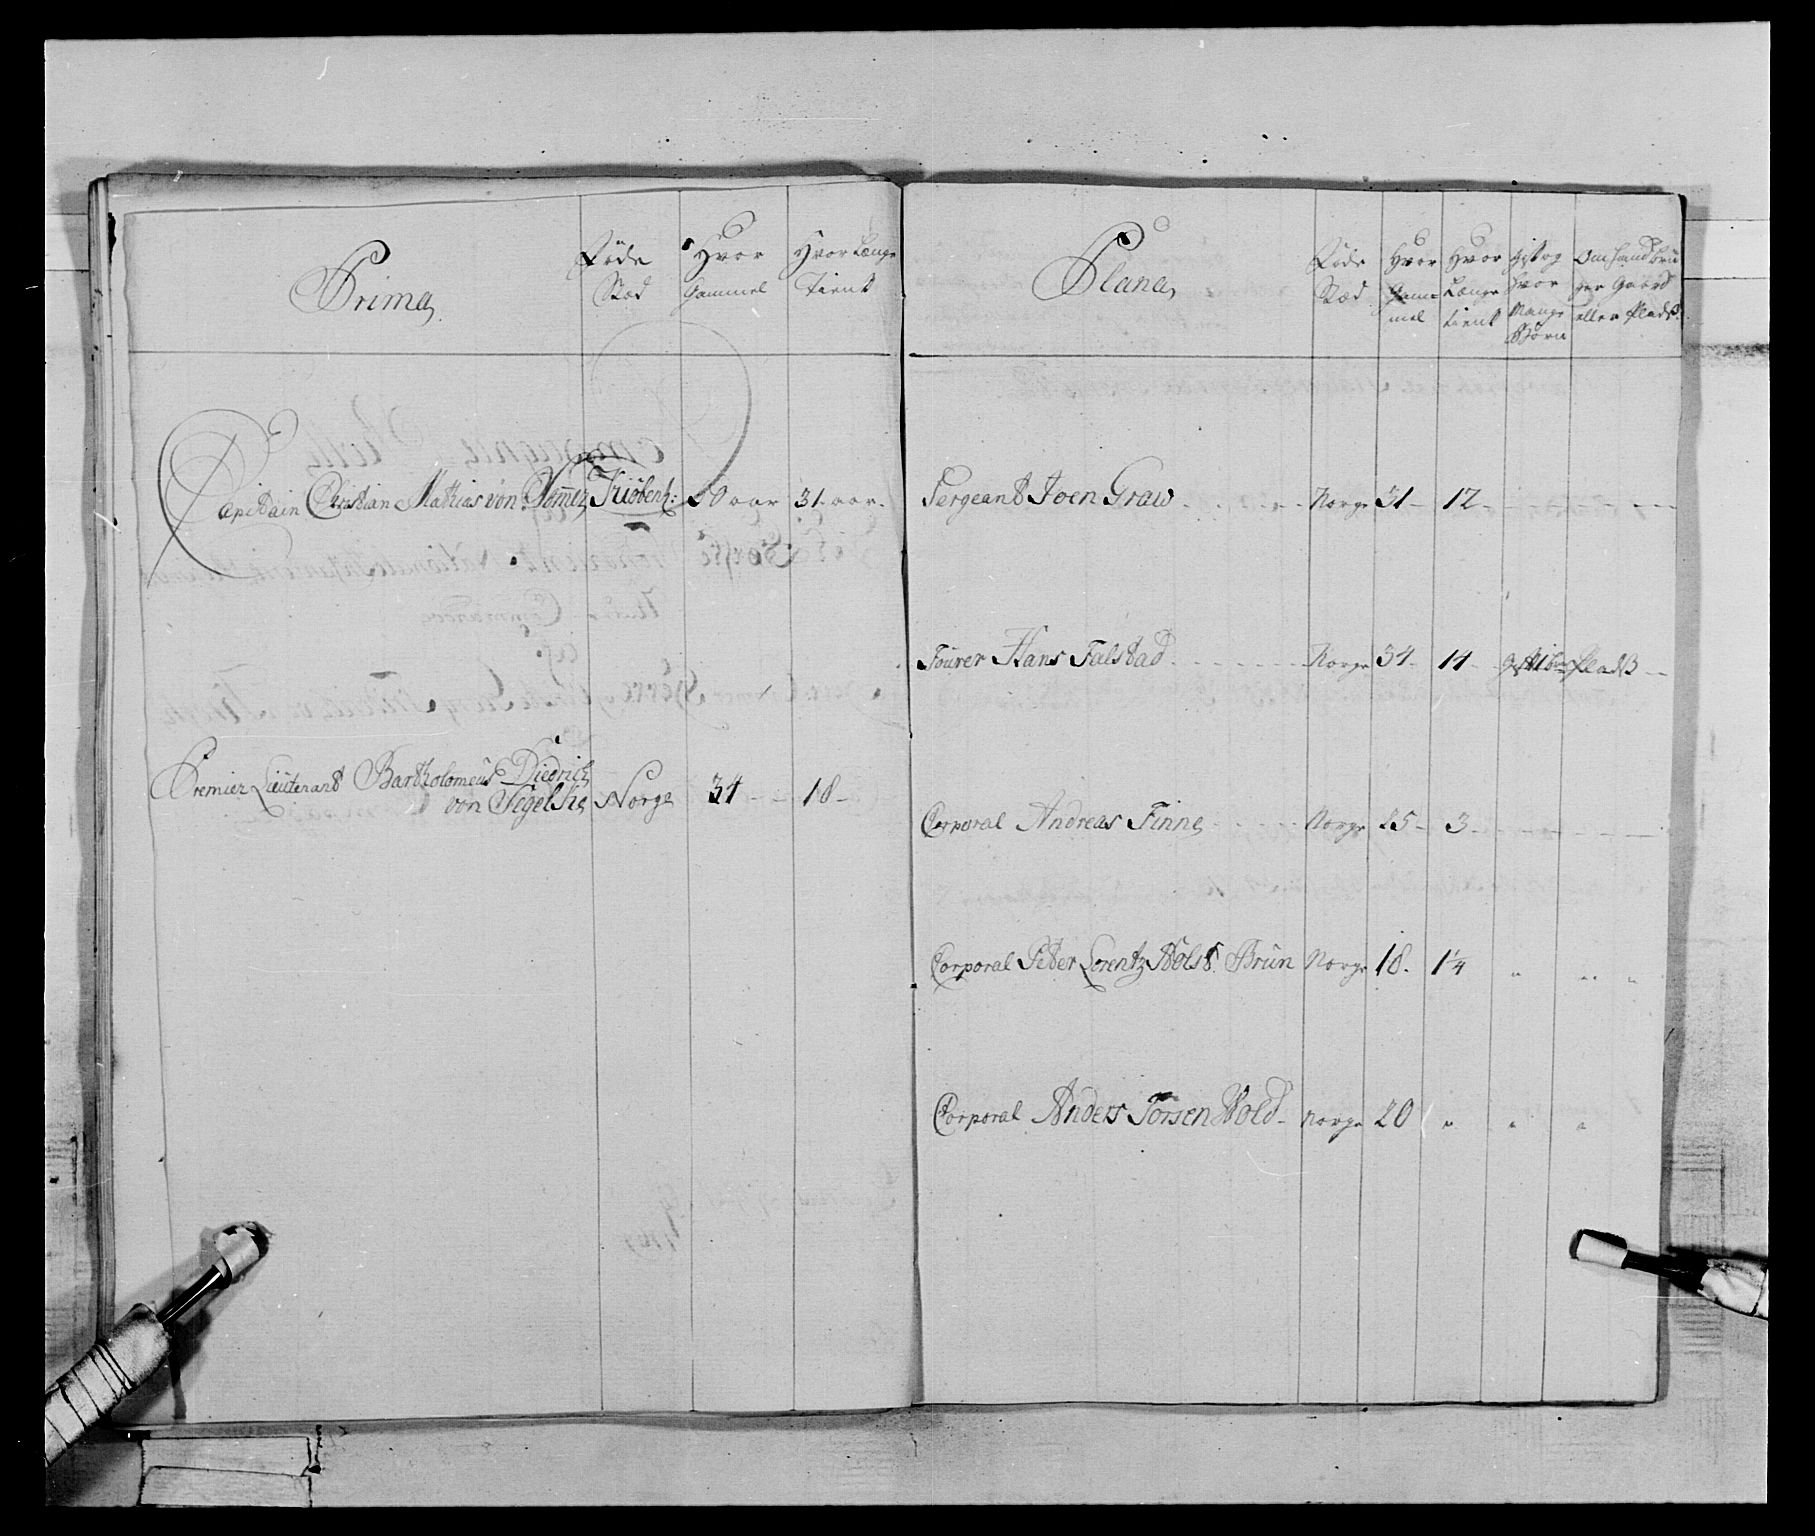 Prima
Føde Stæd
Hvor Gammel
Hvor Længe Tient
Capitain Christian Mathias von Vomer Kiøbenh: 50 aar 31 aar
Premier Lieutenant Bartholomeus Diedrich
von Segelske Norge 34 18
Plana
Føde Stæd
Hvor Gammel
Hvor Længe tient
Gift og Hvor Mange Børn
Om hand bruger Gaard eller Plads
Sergeant Joen Graw Norge 31 12
Fourer Hans Falstad Norge 34 14 Plads
Corporal Andreas Finne Norge 25 3
Corporal Peter Lorentz Holst Brun Norge 18 1¼
Corporal Anders Torsen Wold Norge 20